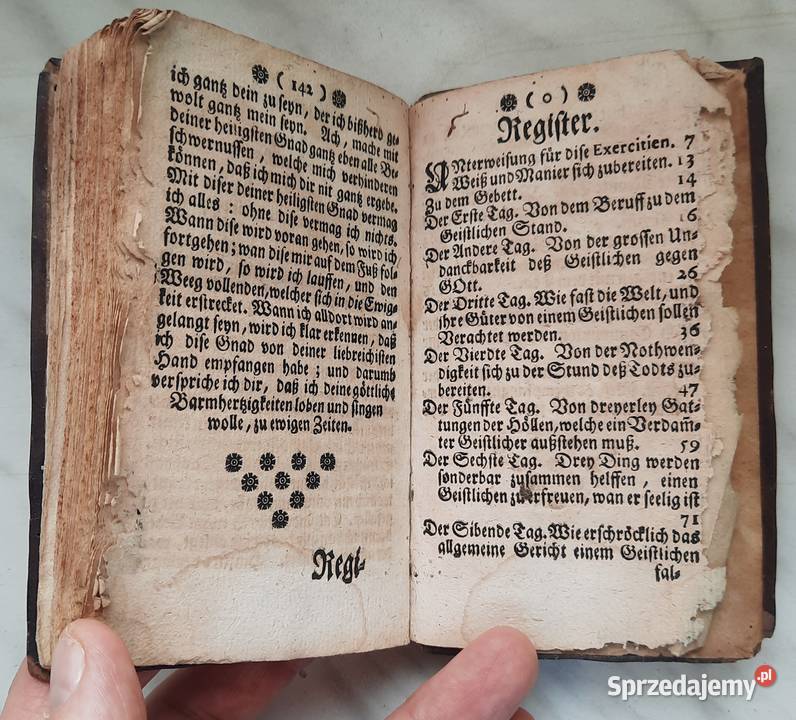 ( 142 )
ich gantz dein zu seyn, der ich bißhero ge-
wolt gantz mein seyn. Ach, mache mit
deiner heiligsten Gnad gantz eben alle Be-
schwernussen, welche mich verhinderen
können, daß ich mich dir nit gantz ergebe.
Mit diser deiner heiligsten Gnad vermag
ich alles: ohne dise vermag ich nichts.
Wann dise wird voran gehen, so wird ich
fortgehen; wan dise mir auf dem Fuß fol-
gen wird, so wird ich lauffen, und den
Weeg vollenden, welcher sich in die Ewig-
keit erstrecket. Wann ich alldort wird an-
gelangt seyn, wird ich klar erkenuen, daß
ich dise Gnad von deiner liebreichisten
Hand empfangen habe; und darumb
verspriche ich dir, daß ich deine göttliche
Barmhertzigkeiten loben und singen
wolle, zu ewigen Zeiten.
Regi-
( 0 )
Register.
UNterweisung für dise Exercitien. 7
Weiß und Manier sich zubereiten. 13
Zu dem Gebett. 14
Der Erste Tag. Von dem Beruff zu dem
Geistlichen Stand. 16
Der Andere Tag. Von der grossen Un-
danckbarkeit deß Geistlichen gegen
GOtt. 26
Der Dritte Tag. Wie fast die Welt, und
jhre Güter von einem Geistlichen sollen
Verachtet werden. 36
Der Vierdte Tag. Von der Nothwen-
digkeit sich zu der Stund deß Todts zu-
bereiten. 47
Der Fünffte Tag. Von dreyerley Gat-
tungen der Höllen, welche ein Verdam̃-
ter Geistlicher außstehen muß. 59
Der Sechste Tag. Drey Ding werden
sonderbar zusammen helffen, einen
Geistlichen zu erfreuen, wan er seelig ist
71
Der Sibende Tag. Wie erschröcklich das
allgemeine Gericht einem Geistlichen
fal-
Sprzedajemy.pl